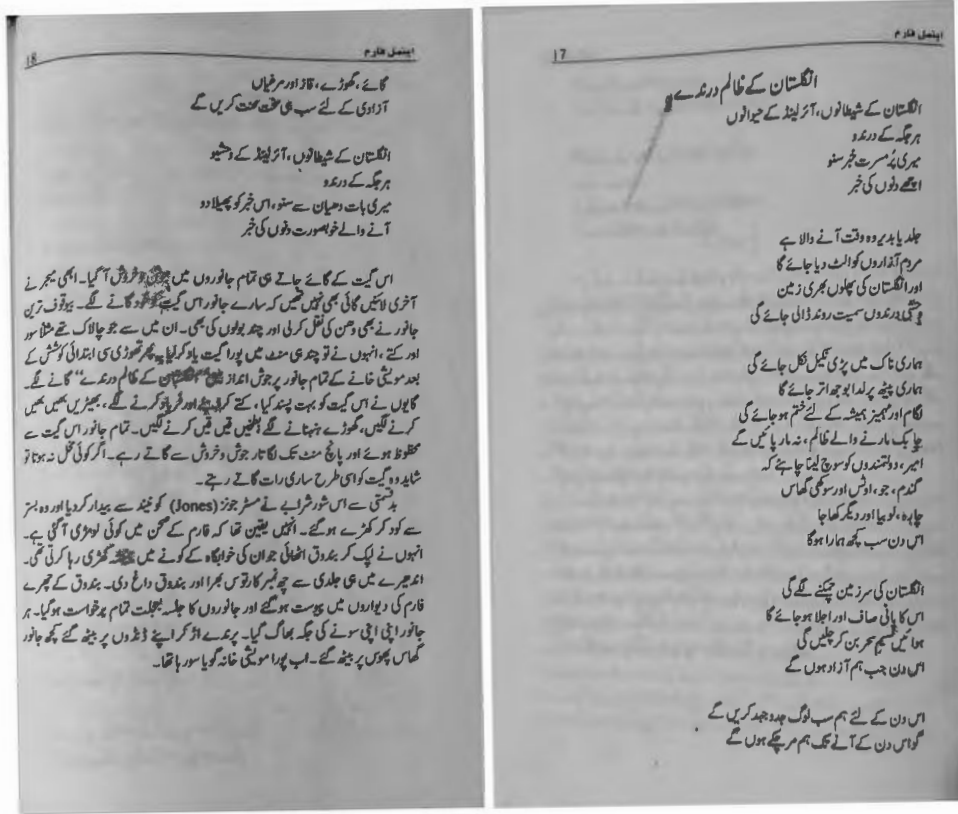 اینمل فارم
17
انگلستان کے ظالم درندے
انگلستان کے شیطانوں، آئرلینڈ کے حیوانوں
ہر جگہ کے درندو
میری پُرمسرت خبر سنو
اچھے دنوں کی خبر
جلد یا بدیر وہ وقت آنے والا ہے
مردم آذاروں کو الٹ دیا جائے گا
اور انگلستان کی پھلوں بھری زمین
وحشی درندوں سمیت روند ڈالی جائے گی
ہماری ناک میں پڑی نکیل نکل جائے گی
ہماری پیٹھ پر لدا بوجھ اتر جائے گا
لگام اور مہمیز ہمیشہ کے لئے ختم ہو جائے گی
چابک مارنے والے ظالم، نہ مار پائیں گے
امیر، دولتمندوں کو سوچ لینا چاہئے کہ
گندم، جو، اوٹس اور سوکھی گھاس
چارہ، لوبیا اور دیگر کھاجا
اس دن سب کچھ ہمارا ہوگا
انگلستان کی سرزمین چمکنے لگے گی
اس کا پانی صاف اور اجلا ہو جائے گا
ہوائیں نسیم سحر بن کر چلیں گی
اس دن جب ہم آزاد ہوں گے
اس دن کے لئے ہم سب لوگ جدوجہد کریں گے
گو اس دن کے آنے تک ہم مر چکے ہوں گے
اینمل فارم
18
گائے، گھوڑے، قاز اور مرغیاں
آزادی کے لئے سب ہی سخت محنت کریں گے
انگلستان کے شیطانوں، آئرلینڈ کے وحشیو
ہر جگہ کے درندو
میری بات دھیان سے سنو، اس خبر کو پھیلا دو
آنے والے خوبصورت دنوں کی خبر
اس گیت کے گائے جاتے ہی تمام جانوروں میں جوش و خروش آ گیا۔ ابھی میجر نے
آخری لائنیں گائی بھی نہیں تھیں کہ سارے جانور اس گیت کو خود گانے لگے۔ بیوقوف ترین
جانور نے بھی دھن کی نقل کر لی اور چند بولوں کی بھی۔ ان میں سے جو چالاک تھے مثلاً سور
اور کتے، انہوں نے تو چند ہی منٹ میں پورا گیت یاد کر لیا۔ پھر تھوڑی سی ابتدائی کوشش کے
بعد مویشی خانے کے تمام جانور پرجوش انداز میں "انگلستان کے ظالم درندے" گانے لگے۔
گایوں نے اس گیت کو بہت پسند کیا، کتے اور فریاد کرنے لگے، بھیڑیں بھیں بھیں
کرنے لگیں، گھوڑے ہنہنانے لگے بطخیں قیں قیں کرنے لگیں۔ تمام جانور اس گیت سے
محظوظ ہوئے اور پانچ منٹ تک لگاتار جوش و خروش سے گاتے رہے۔ اگر کوئی مخل نہ ہوتا تو
شاید وہ گیت کو اسی طرح ساری رات گاتے رہتے۔
بدقسمتی سے اس شور شرابے نے مسٹر جونز (Jones) کو نیند سے بیدار کر دیا اور وہ بستر
سے کود کر کھڑے ہو گئے۔ انہیں یقین تھا کہ فارم کے صحن میں کوئی لومڑی آ گئی ہے۔
انہوں نے لپک کر بندوق اٹھائی جو ان کی خوابگاہ کے کونے میں ہمیشہ کھڑی رہا کرتی تھی۔
اندھیرے میں ہی جلدی سے چھ نمبر کارتوس بھرا اور بندوق داغ دی۔ بندوق کے چھرے
فارم کی دیواروں میں پیوست ہو گئے اور جانوروں کا جلسہ بعجلت تمام برخواست ہو گیا۔ ہر
جانور اپنی اپنی سونے کی جگہ بھاگ گیا۔ پرندے اڑ کر اپنے ڈنڈوں پر بیٹھ گئے کچھ جانور
گھاس پھوس پر بیٹھ گئے۔ اب پورا مویشی خانہ گویا سو رہا تھا۔